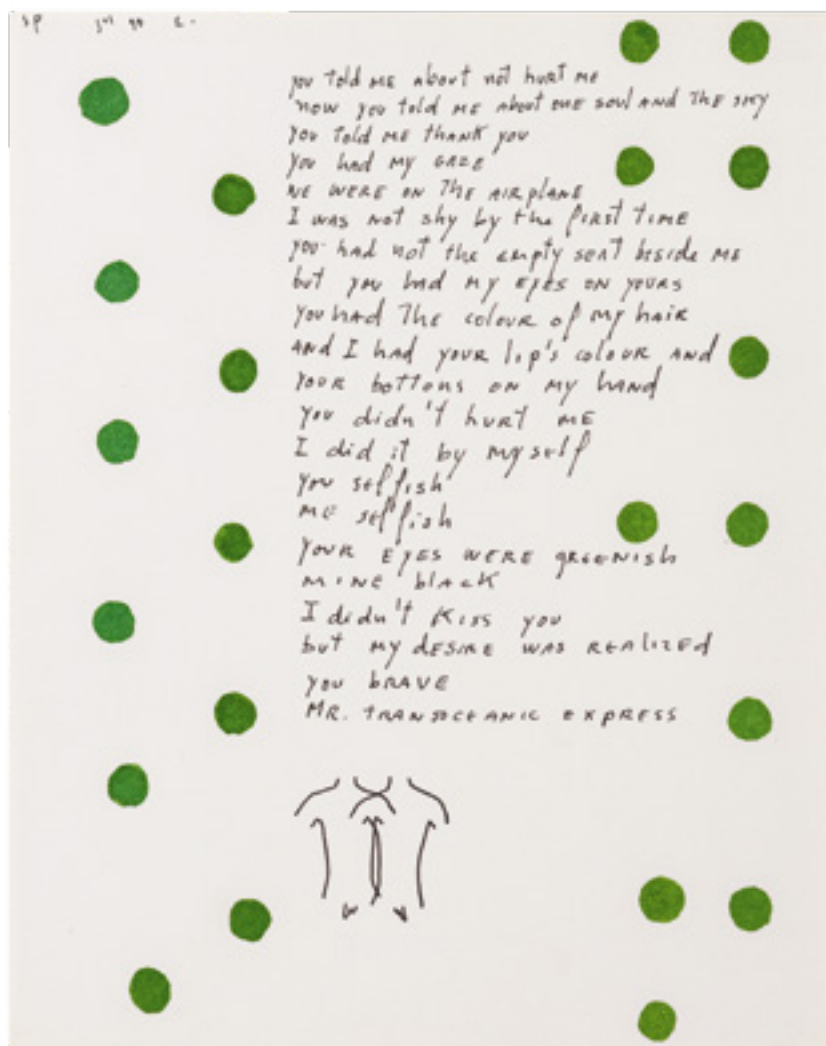 SP
you told me about not hurt me
now you told me about one soul and the sky
you told me thank you
you had my gaze
we were on the airplane
I was not shy by the first time
you had not the empty seat beside me
but you had my eyes on yours
you had the colour of my hair
and I had your lip's colour and
your bottons on my hand
you didn't hurt me
I did it by myself
you selfish
me selfish
your eyes were greenish
mine black
I didn't kiss you
but my desire was realized
you brave
Mr. transoceanic express